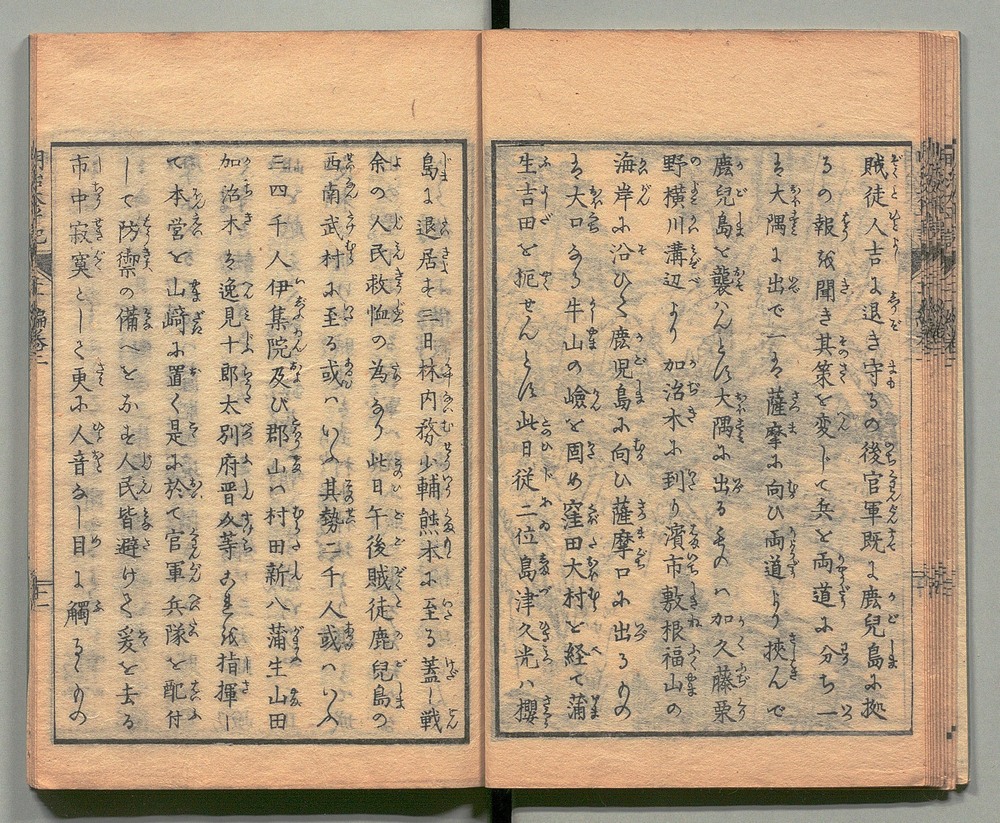 賊徒人吉に退き守るの後官軍既に鹿兒島に拠
るの報を聞き其策を変じて兵を両道に分ち一
は大隅に出で一は薩摩に向ひ両道より挾んで
鹿兒島を襲はんとす大隅に出るものハ加久藤栗
野横川溝辺より加治木に到り濱市敷根福山の
海岸に沿ひて鹿児島に向ひ薩摩口に出るもの
は大口より牛山の嶮を固め窪田大村を経て蒲
生吉田を扼せんとす此日従二位島津久光ハ櫻
島に退居す三日林内務少輔熊本に至る蓋し戦
余の人民救恤の為なり此日午後賊徒鹿兒島の
西南武村に至る或ハいふ其勢二千人或ハいふ
三四千人伊集院及び郡山ハ村田新八蒲生山田
加治木は逸見十郎太別府晋介等これを指揮し
て本営を山﨑に置く是に於て官軍兵隊を配付
して防禦の備へをなす人民皆避けて爰を去る
市中寂寞として更に人音なし目に觸るゝもの